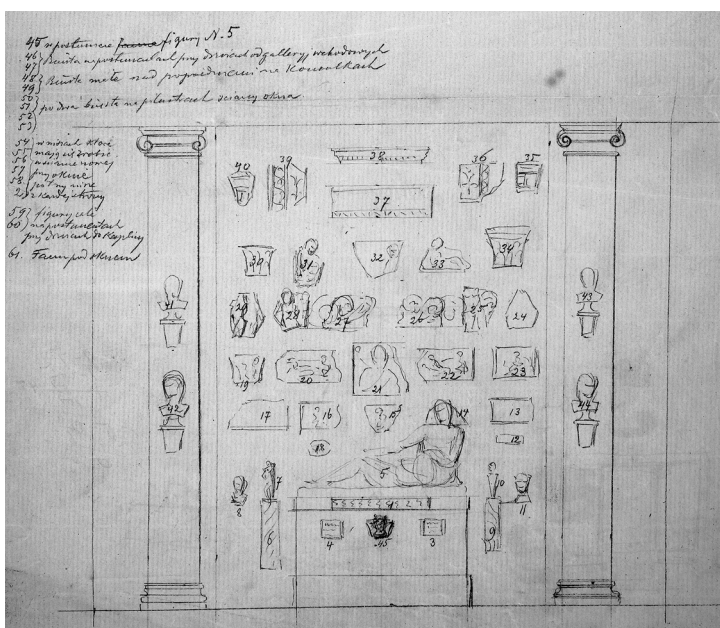 45 w postumencie figury N. 5
46
47 } Biusta na postumentach przy drzwiach od galleryj wchodowych
48
49 } Biusta małe nad poprzedniemi na Konsolkach
50
51 } po dwa biusta na pilastrach ściany okna.
52
53
54 w niszach które
55 mają się zrobić
56 w ścianie nowej
57 przy oknie
58. 
2 z każdej strony
59 } figury całe
60 } na postumentach
przy drzwiach do Kaplicy
61. Faun pod oknem
40 39 38 36 35
37
30 31 32 33 34
41 43
29 28 27 26 25 24
19 20 21 22 23
42 44
17 16 15 14 13
18 12
5
8 7 10 11
6 9
4 45 3